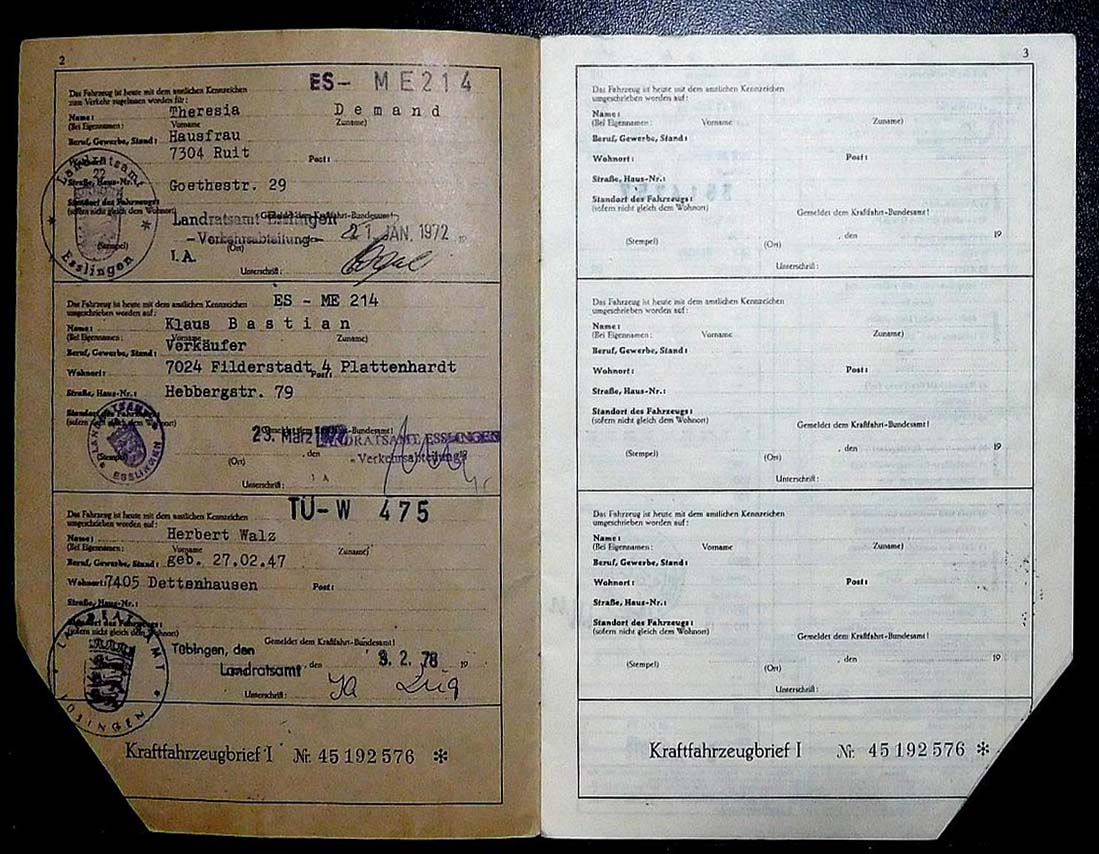 2
Das Fahrzeug ist heute mit dem amtlichen Kennzeichen ES- ME214
zum Verkehr zugelassen worden für:
Name: Theresia Demand
(Bei Eigennamen: Vorname Zuname)
Beruf, Gewerbe, Stand: Hausfrau
Wohnort: 7304 Ruit Post:
Straße, Haus-Nr.: Goethestr. 29
Standort des Fahrzeugs:
(sofern nicht gleich dem Wohnort)
Gemeldet dem Kraftfahrt-Bundesamt!
Landratsamt Esslingen
-Verkehrsabteilung- 21. JAN. 1972 19
(Stempel) (Ort)
I.A.
Unterschrift:
Landratsamt
22
Esslingen
Das Fahrzeug ist heute mit dem amtlichen Kennzeichen ES - ME 214
umgeschrieben worden auf:
Name: Klaus Bastian
(Bei Eigennamen: Vorname Zuname)
Beruf, Gewerbe, Stand: Verkäufer
Wohnort: 7024 Filderstadt 4 Plattenhardt
Post:
Straße, Haus-Nr.: Hebbergstr. 79
Standort des Fahrzeugs:
(sofern nicht gleich dem Wohnort)
Gemeldet dem Kraftfahrt-Bundesamt!
23. März LANDRATSAMT ESSLINGEN
(Stempel) (Ort) , den -Verkehrsabteilung- 19
I A
Unterschrift:
LANDRATSAMT
ESSLINGEN
Das Fahrzeug ist heute mit dem amtlichen Kennzeichen TÜ-W 475
umgeschrieben worden auf:
Name: Herbert Walz
(Bei Eigennamen: Vorname Zuname)
Beruf, Gewerbe, Stand: geb. 27.02.47
Wohnort: 7405 Dettenhausen Post:
Straße, Haus-Nr.:
Standort des Fahrzeugs:
(sofern nicht gleich dem Wohnort)
Gemeldet dem Kraftfahrt-Bundesamt!
Tübingen, den
Landratsamt , den 3. 2. 78 19
Unterschrift:
LANDRATSAMT
TÜBINGEN
Kraftfahrzeugbrief I Nr. 45 192 576 *
3
Das Fahrzeug ist heute mit dem amtlichen Kennzeichen
umgeschrieben worden auf:
Name:
(Bei Eigennamen: Vorname Zuname)
Beruf, Gewerbe, Stand:
Wohnort: Post:
Straße, Haus-Nr.:
Standort des Fahrzeugs:
(sofern nicht gleich dem Wohnort) Gemeldet dem Kraftfahrt-Bundesamt!
, den 19
(Stempel) (Ort)
Unterschrift:
Das Fahrzeug ist heute mit dem amtlichen Kennzeichen
umgeschrieben worden auf:
Name:
(Bei Eigennamen: Vorname Zuname)
Beruf, Gewerbe, Stand:
Wohnort: Post:
Straße, Haus-Nr.:
Standort des Fahrzeugs:
(sofern nicht gleich dem Wohnort) Gemeldet dem Kraftfahrt-Bundesamt!
, den 19
(Stempel) (Ort)
Unterschrift:
Das Fahrzeug ist heute mit dem amtlichen Kennzeichen
umgeschrieben worden auf:
Name:
(Bei Eigennamen: Vorname Zuname)
Beruf, Gewerbe, Stand:
Wohnort: Post:
Straße, Haus-Nr.:
Standort des Fahrzeugs:
(sofern nicht gleich dem Wohnort) Gemeldet dem Kraftfahrt-Bundesamt!
, den 19
(Stempel) (Ort)
Unterschrift:
Kraftfahrzeugbrief I Nr. 45 192 576 *